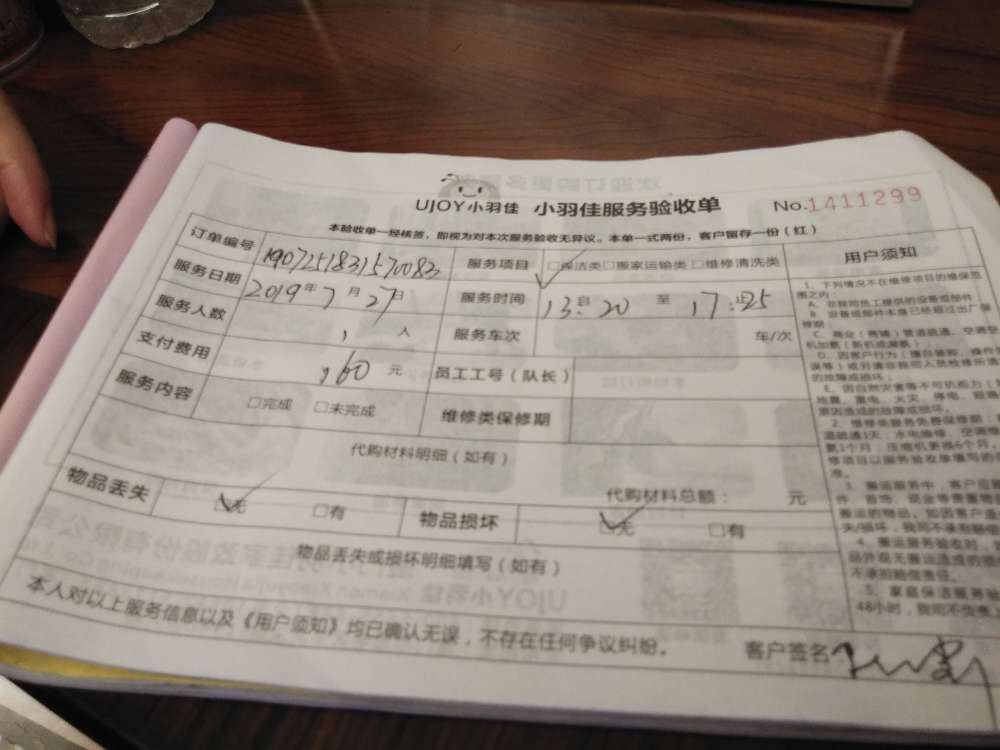 UJOY小羽佳 小羽佳服务验收单 No.1411299
本验收单一经核签，即视为对本次服务验收无异议。本单一式两份，客户留存一份（红）
订单编号 1907251831570083 服务项目 □保洁类□搬家运输类□维修清洗类 用户须知
服务日期 2019年7月27日 服务时间 13:20 至 17:25
服务人数 1 人 服务车次 车/次
支付费用 160 元 员工工号（队长）
服务内容 □完成 □未完成 维修类保修期
代购材料明细（如有）
代购材料总额： 元
物品丢失 □无 □有 物品损坏 □无 □有
物品丢失或损坏明细填写（如有）
本人对以上服务信息以及《用户须知》均已确认无误，不存在任何争议纠纷。 客户签名
1、下列情况不在维修项目的维保范
围之内：
A、非我司员工提供的设备或部件
B、设备或部件本身已经超过出厂保
修期；
E、因自然灾害等不可抗能力（
地震、雷电、火灾、停电、短路
原因造成的故障或损坏。
4、搬运服务验收时，
不承担赔偿责任。
5、家庭保洁服务
48小时，我司不负责